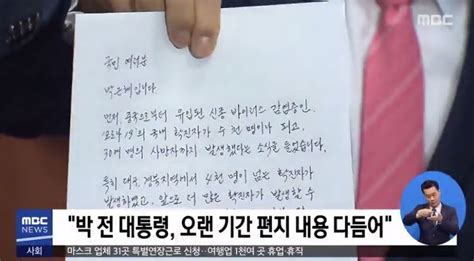 MBC
국민 여러분
박근혜입니다
먼저, 중국으로부터 유입된 신종 바이러스 감염증인
코로나19의 국내 확진자가 수 천 명이나 되고
30여 명의 사망자까지 발생했다는 소식을 들었습니다.
특히 대구, 경북지역에서 4천 명이 넘는 확진자가
발생하였고, 앞으로 더 많은 확진자가 발생할 수
"박 전 대통령, 오랜 기간 편지 내용 다듬어"
MBC
NEWS
사회
마스크 업체 31곳 특별연장근로 신청‥여행업 1천여 곳 휴업·휴직